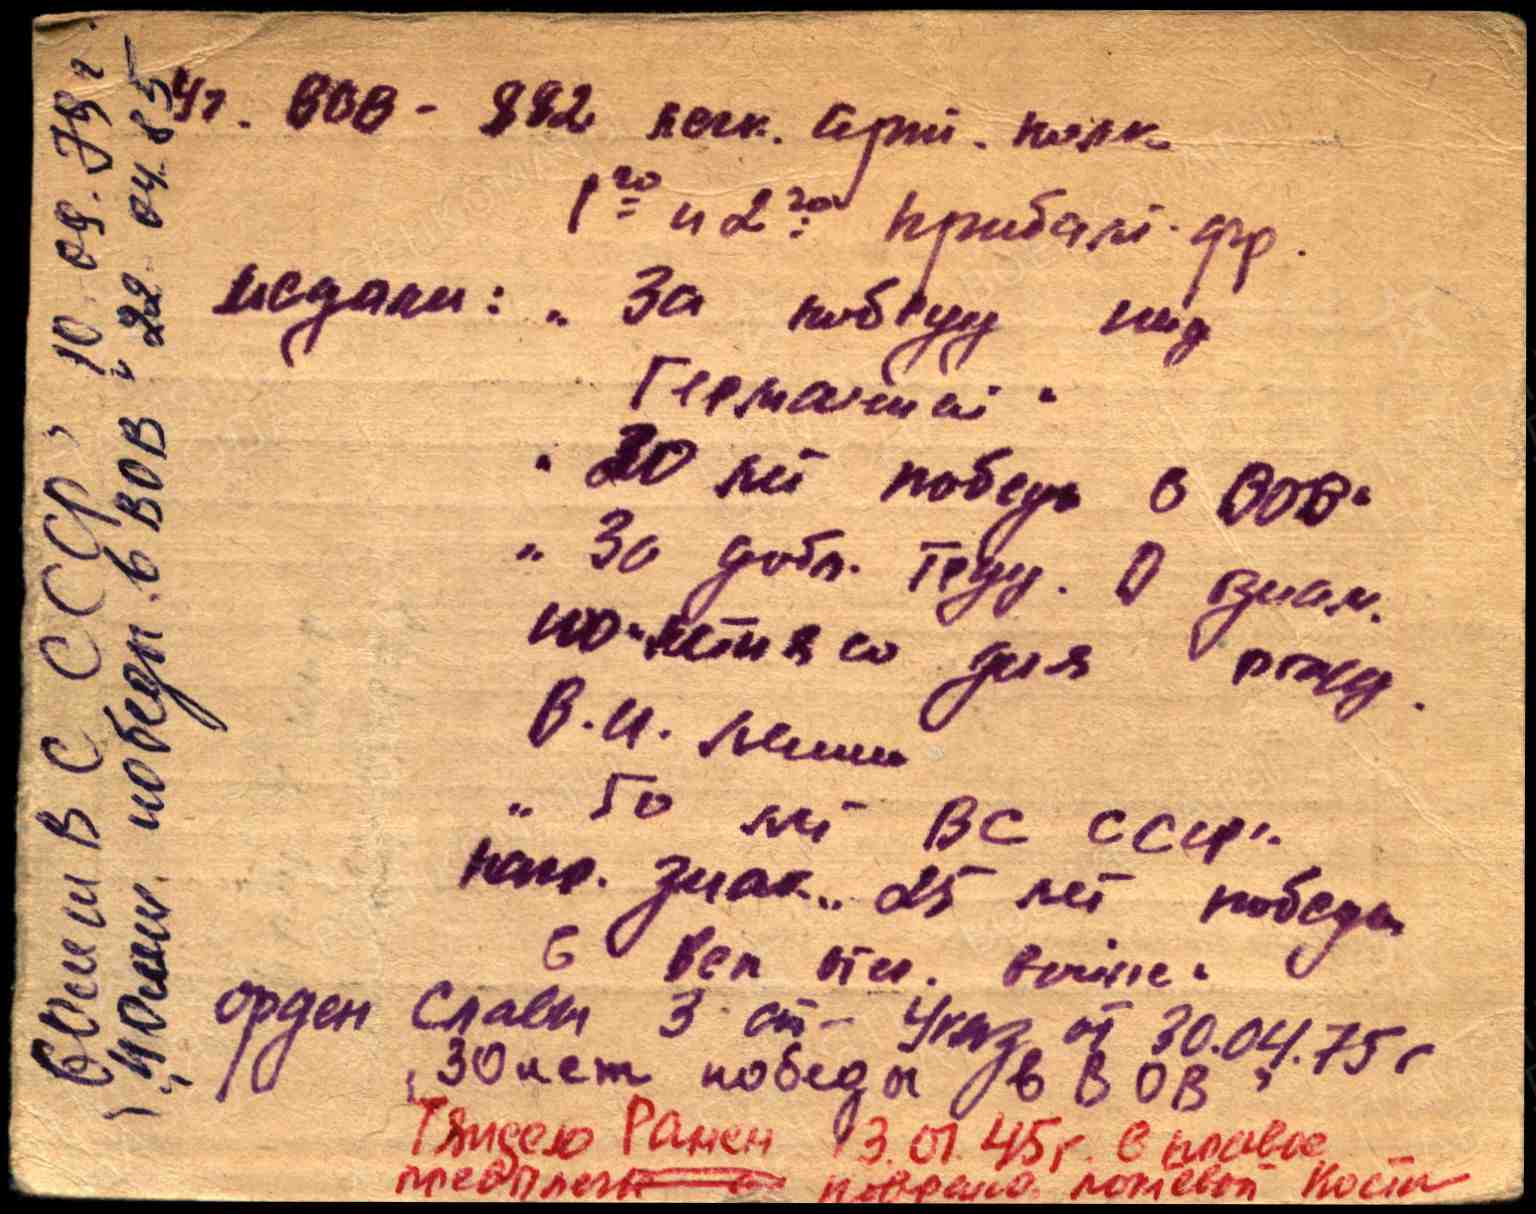 Уч. ВОВ - 882 легк. арт. полк
1го и 2го Прибалт. фр.
медали: „За победу над
Германией"
"20 лет победы в ВОВ"
„За добл. труд. В ознам.
100-летия со дня рожд.
В.И. Ленина
„50 лет ВС СССР".
нагр. знак „25 лет победы
в Вел отеч. войне"
орден Славы 3 ст - Указ от 30.04.75 г
„30 лет победы в ВОВ"
Тяжело Ранен 13.01.45г. в правое
предплечье повреждена локтевой Кости
„60 лет ВС СССР" 10.09.79 г.
„40 лет победы в ВОВ" 22.04.85